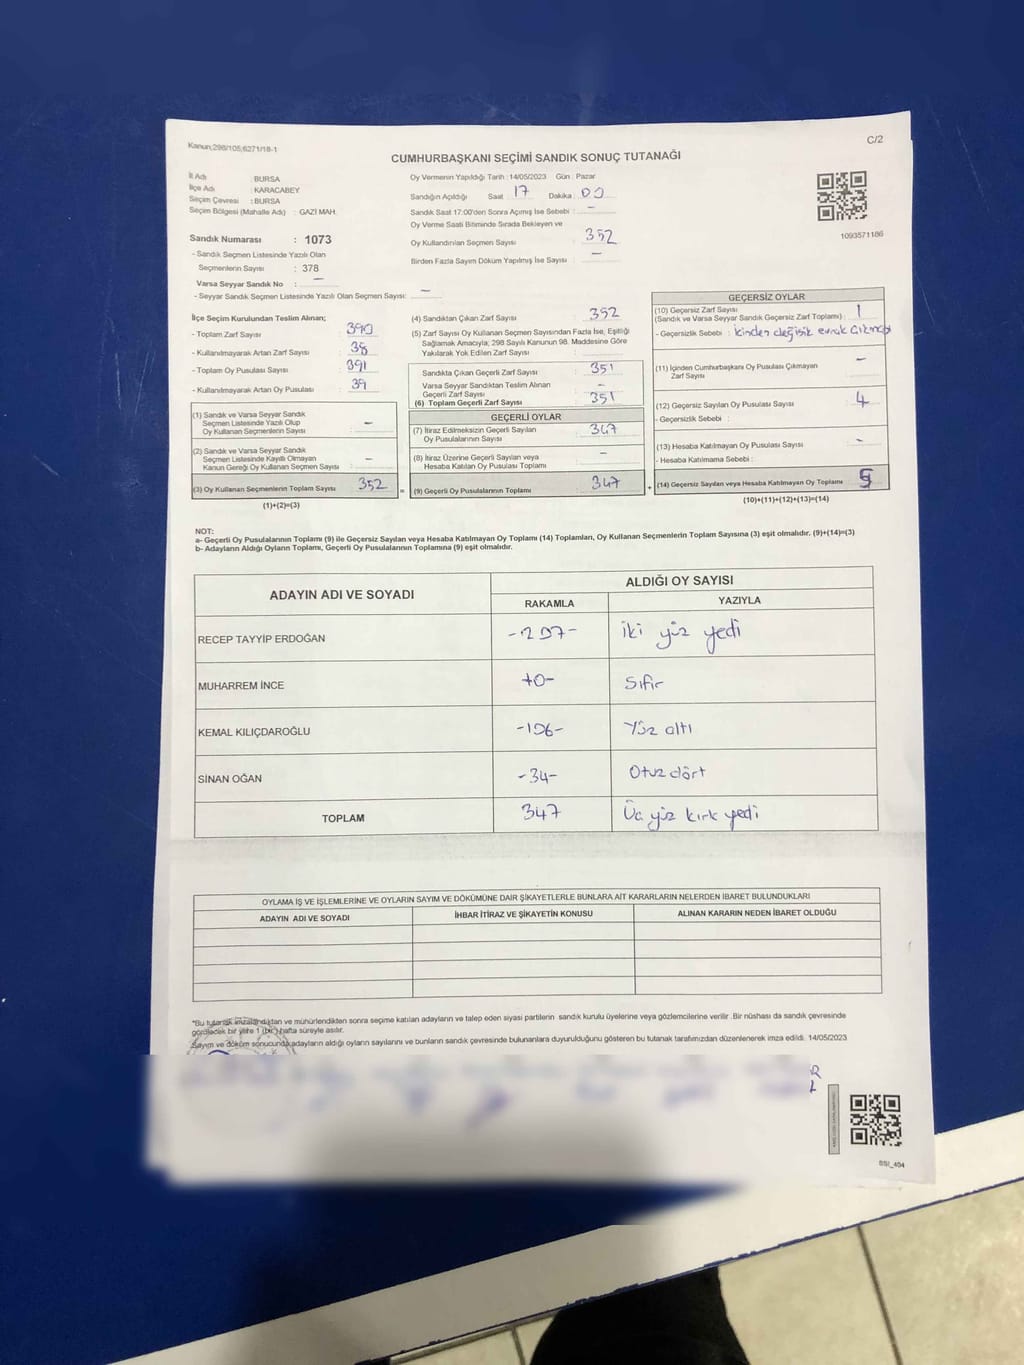 Kanun;298/105;6271/18-1
C/2
CUMHURBAŞKANI SEÇİMİ SANDIK SONUÇ TUTANAĞI
İl Adı : BURSA
İlçe Adı : KARACABEY
Seçim Çevresi : BURSA
Seçim Bölgesi (Mahalle Adı) : GAZİ MAH.
Sandık Numarası : 1073
- Sandık Seçmen Listesinde Yazılı Olan
Seçmenlerin Sayısı : 378
Varsa Seyyar Sandık No : —
- Seyyar Sandık Seçmen Listesinde Yazılı Olan Seçmen Sayısı: —
Oy Vermenin Yapıldığı Tarih : 14/05/2023 Gün : Pazar
Sandığın Açıldığı Saat : 17 Dakika : 00
Sandık Saat 17:00'den Sonra Açılmış İse Sebebi : —
Oy Verme Saati Bitiminde Sırada Bekleyen ve
Oy Kullandırılan Seçmen Sayısı : 352
Birden Fazla Sayım Döküm Yapılmış İse Sayısı : —
1093571186
İlçe Seçim Kurulundan Teslim Alınan;
- Toplam Zarf Sayısı : 390
- Kullanılmayarak Artan Zarf Sayısı : 38
- Toplam Oy Pusulası Sayısı : 391
- Kullanılmayarak Artan Oy Pusulası : 39
(1) Sandık ve Varsa Seyyar Sandık
Seçmen Listesinde Yazılı Olup
Oy Kullanan Seçmenlerin Sayısı : —
(2) Sandık ve Varsa Seyyar Sandık
Seçmen Listesinde Kayıtlı Olmayan
Kanun Gereği Oy Kullanan Seçmen Sayısı : —
(3) Oy Kullanan Seçmenlerin Toplam Sayısı : 352
(1)+(2)=(3)
(4) Sandıktan Çıkan Zarf Sayısı : 352
(5) Zarf Sayısı Oy Kullanan Seçmen Sayısından Fazla İse, Eşitliği
Sağlamak Amacıyla; 298 Sayılı Kanunun 98. Maddesine Göre
Yakılarak Yok Edilen Zarf Sayısı :
Sandıkta Çıkan Geçerli Zarf Sayısı : 351
Varsa Seyyar Sandıktan Teslim Alınan
Geçerli Zarf Sayısı : —
(6) Toplam Geçerli Zarf Sayısı : 351
GEÇERLİ OYLAR
(7) İtiraz Edilmeksizin Geçerli Sayılan
Oy Pusulalarının Sayısı : 347
(8) İtiraz Üzerine Geçerli Sayılan veya
Hesaba Katılan Oy Pusulası Toplamı : —
= (9) Geçerli Oy Pusulalarının Toplamı : 347
GEÇERSİZ OYLAR
(10) Geçersiz Zarf Sayısı
(Sandık ve Varsa Seyyar Sandık Geçersiz Zarf Toplamı) : 1
- Geçersizlik Sebebi : İcinden değişik evrak
(11) İçinden Cumhurbaşkanı Oy Pusulası Çıkmayan
Zarf Sayısı : —
(12) Geçersiz Sayılan Oy Pusulası Sayısı : 4
- Geçersizlik Sebebi :
(13) Hesaba Katılmayan Oy Pusulası Sayısı : -
- Hesaba Katılmama Sebebi :
+ (14) Geçersiz Sayılan veya Hesaba Katılmayan Oy Toplamı : 5
(10)+(11)+(12)+(13)=(14)
NOT:
a- Geçerli Oy Pusulalarının Toplamı (9) ile Geçersiz Sayılan veya Hesaba Katılmayan Oy Toplamı (14) Toplamları, Oy Kullanan Seçmenlerin Toplam Sayısına (3) eşit olmalıdır. (9)+(14)=(3)
b- Adayların Aldığı Oyların Toplamı, Geçerli Oy Pusulalarının Toplamına (9) eşit olmalıdır.
ADAYIN ADI VE SOYADI ALDIĞI OY SAYISI
RAKAMLA YAZIYLA
RECEP TAYYİP ERDOĞAN -207- İki yüz yedi
MUHARREM İNCE -0- Sıfır
KEMAL KILIÇDAROĞLU -106- Yüz altı
SİNAN OĞAN -34- Otuz dört
TOPLAM 347 Üç yüz kırk yedi
OYLAMA İŞ VE İŞLEMLERİNE VE OYLARIN SAYIM VE DÖKÜMÜNE DAİR ŞİKAYETLERLE BUNLARA AİT KARARLARIN NELERDEN İBARET BULUNDUKLARI
ADAYIN ADI VE SOYADI İHBAR İTİRAZ VE ŞİKAYETİN KONUSU ALINAN KARARIN NEDEN İBARET OLDUĞU
*Bu tutanak imzalandıktan ve mühürlendikten sonra seçime katılan adayların ve talep eden siyasi partilerin sandık kurulu üyelerine veya gözlemcilerine verilir. Bir nüshası da sandık çevresinde
görülecek bir yere 1 (bir) hafta süreyle asılır.
Sayım ve döküm sonucunda adayların aldığı oyların sayılarını ve bunların sandık çevresinde bulunanlara duyurulduğunu gösteren bu tutanak tarafımızdan düzenlenerek imza edildi. 14/05/2023
BSI_404